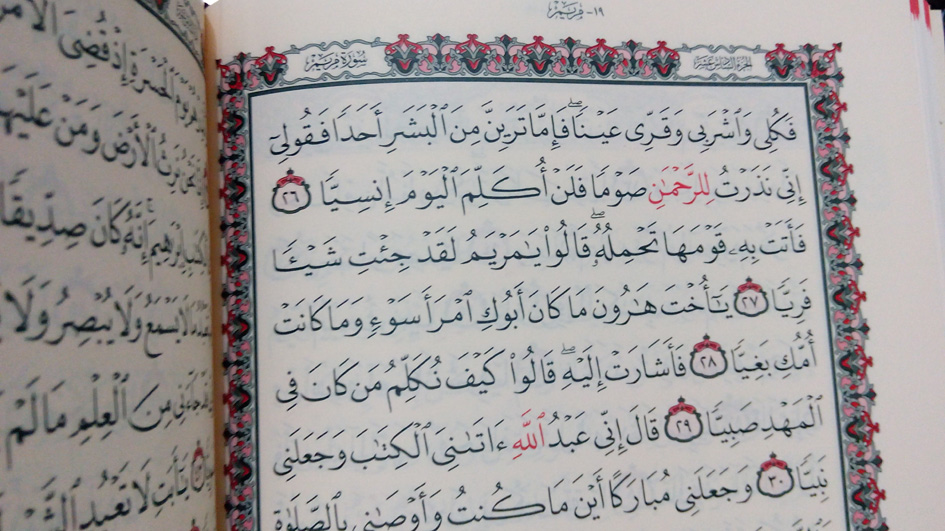 ١٩- مريم
الجزء السادس عشر
سورة مريم
فَكُلِي وَٱشْرَبِي وَقَرِّي عَيْنًاۖ فَإِمَّا تَرَيِنَّ مِنَ ٱلْبَشَرِ أَحَدًا فَقُولِيٓ
إِنِّي نَذَرْتُ لِلرَّحْمَٰنِ صَوْمًا فَلَنْ أُكَلِّمَ ٱلْيَوْمَ إِنسِيًّا ٢٦
فَأَتَتْ بِهِۦ قَوْمَهَا تَحْمِلُهُۥۖ قَالُوا۟ يَٰمَرْيَمُ لَقَدْ جِئْتِ شَيْـًٔا
فَرِيًّا ٢٧ يَٰٓأُخْتَ هَٰرُونَ مَا كَانَ أَبُوكِ ٱمْرَأَ سَوْءٍ وَمَا كَانَتْ
أُمُّكِ بَغِيًّا ٢٨ فَأَشَارَتْ إِلَيْهِۖ قَالُوا۟ كَيْفَ نُكَلِّمُ مَن كَانَ فِي
ٱلْمَهْدِ صَبِيًّا ٢٩ قَالَ إِنِّي عَبْدُ ٱللَّهِ ءَاتَىٰنِيَ ٱلْكِتَٰبَ وَجَعَلَنِي
نَبِيًّا ٣٠ وَجَعَلَنِي مُبَارَكًا أَيْنَ مَا كُنتُ وَأَوْصَٰنِي بِٱلصَّلَوٰةِ
إِذْ قُضِيَ ٱلْأَمْرُ
ٱلْأَرْضَ وَمَنْ عَلَيْهَا
إِنَّهُۥ كَانَ صِدِّيقًا
لَا يَسْمَعُ وَلَا يُبْصِرُ وَلَا
جَآءَنِي مِنَ ٱلْعِلْمِ مَا لَمْ
يَٰٓأَبَتِ لَا تَعْبُدِ